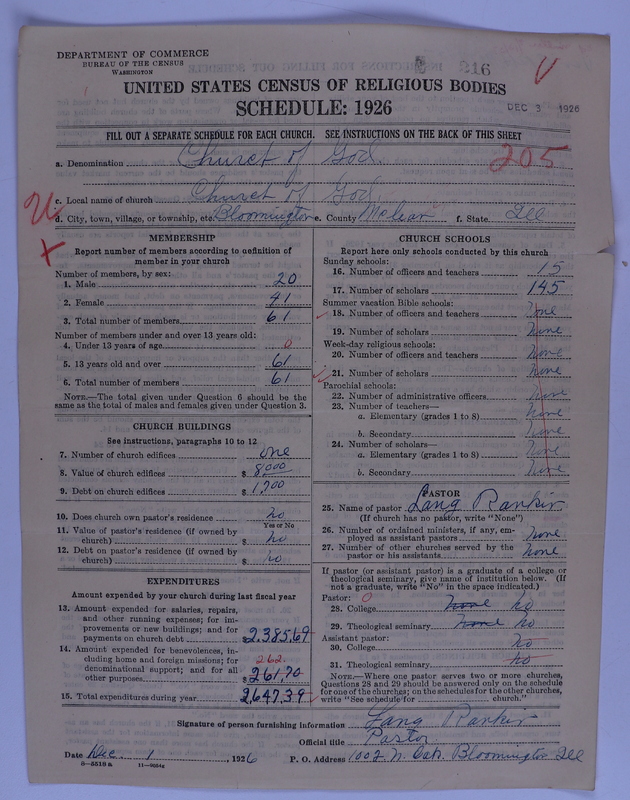 DEPARTMENT OF COMMERCE
BUREAU OF THE CENSUS
WASHINGTON
216
UNITED STATES CENSUS OF RELIGIOUS BODIES
SCHEDULE: 1926
DEC 3 1926
FILL OUT A SEPARATE SCHEDULE FOR EACH CHURCH. SEE INSTRUCTIONS ON THE BACK OF THIS SHEET
a. Denomination Church of God
205
c. Local name of church Church of God
d. City, town, village, or township, etc. Bloomington e. County McLean f. State Ill
MEMBERSHIP
Report number of members according to definition of
member in your church
Number of members, by sex:
1. Male 20
2. Female 41
3. Total number of members 61
Number of members under and over 13 years old:
4. Under 13 years of age 0
5. 13 years old and over 61
6. Total number of members 61
NOTE.—The total given under Question 6 should be the
same as the total of males and females given under Question 3.
CHURCH BUILDINGS
See instructions, paragraphs 10 to 12
7. Number of church edifices one
8. Value of church edifices $ 8000
9. Debt on church edifices $ 1,200
10. Does church own pastor's residence no
Yes or No
11. Value of pastor's residence (if owned by
church) $ no
12. Debt on pastor's residence (if owned by
church) $ no
EXPENDITURES
Amount expended by your church during last fiscal year
13. Amount expended for salaries, repairs,
and other running expenses; for im-
provements or new buildings; and for
payments on church debt $ 2,385.69
14. Amount expended for benevolences, in-
cluding home and foreign missions; for
denominational support; and for all
other purposes $ 261.70
262.
15. Total expenditures during year 2,647.39
CHURCH SCHOOLS
Report here only schools conducted by this church
Sunday schools:
16. Number of officers and teachers 15
17. Number of scholars 145
Summer vacation Bible schools:
18. Number of officers and teachers none
19. Number of scholars none
Week-day religious schools:
20. Number of officers and teachers none
21. Number of scholars none
Parochial schools:
22. Number of administrative officers none
23. Number of teachers—
a. Elementary (grades 1 to 8) none
b. Secondary none
24. Number of scholars—
a. Elementary (grades 1 to 8) none
b. Secondary none
PASTOR
25. Name of pastor Lang Rankin
(If church has no pastor, write "None")
26. Number of ordained ministers, if any, em-
ployed as assistant pastors none
27. Number of other churches served by the
pastor or his assistants none
If pastor (or assistant pastor) is a graduate of a college or
theological seminary, give name of institution below. (If
not a graduate, write "No" in the space indicated.)
Pastor: 0
28. College none no
29. Theological seminary none no
Assistant pastor:
30. College no
31. Theological seminary no
NOTE.—Where one pastor serves two or more churches,
Questions 28 and 29 should be answered only on the schedule
for one of the churches; on the schedules for the other churches,
write "See schedule for church."
Signature of person furnishing information Lang Rankin
Official title Pastor
Date Dec. 1, 1926 P. O. Address 1002 N. Oak. Bloomington Ill
8-5516 a 11-9064a